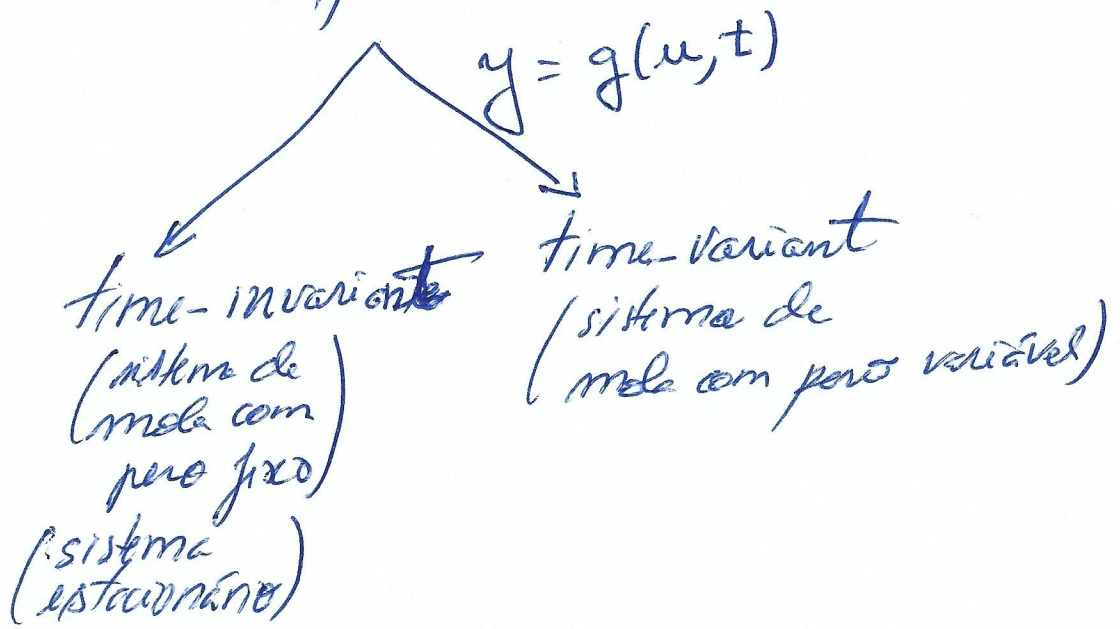 y = g(u, t)
time-invariant
(sistema de
mola com
peso fixo)
(sistema
estacionário)
time-variant
(sistema de
mola com peso variável)